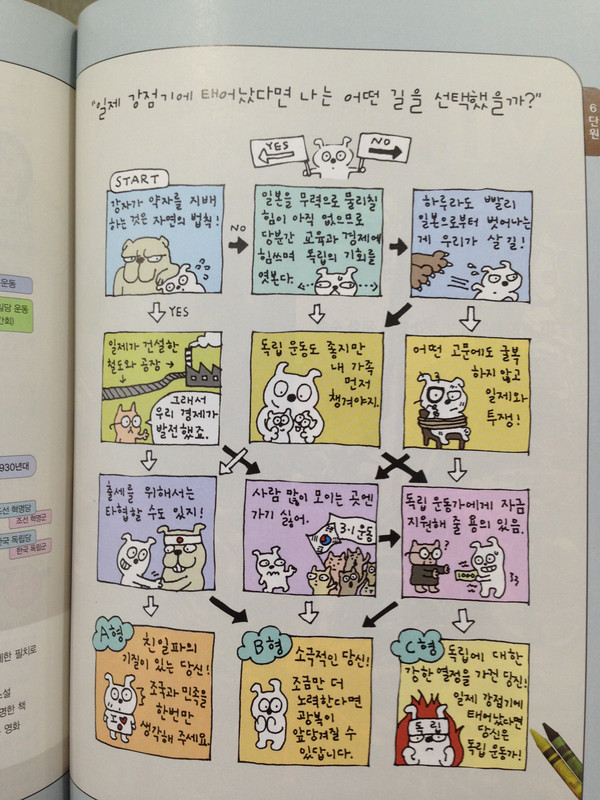 "일제 강점기에 태어났다면 나는 어떤 길을 선택했을까?"
6
단
원
YES
NO
START
강자가 약자를 지배
하는 것은 자연의 법칙!
NO
일본을 무력으로 물리칠
힘이 아직 없으므로
당분간 교육과 경제에
힘쓰며 독립의 기회를
엿본다.
하루라도 빨리
일본으로부터 벗어나는
게 우리가 살 길!
YES
일제가 건설한
철도와 공장
그래서
우리 경제가
발전했죠.
독립 운동도 좋지만
내 가족
먼저
챙겨야지.
어떤 고문에도 굴복
하지 않고
일제와
투쟁!
출세를 위해서는
타협할 수도 있지!
사람 많이 모이는 곳엔
가기 싫어.
3·1 운동
독립 운동가에게 자금
지원해 줄 용의 있음.
?
1000
!?
A형
친일파의
기질이 있는 당신!
조국과 민족을
한번만
생각해 주세요.
B형
소극적인 당신!
조금만 더
노력한다면
광복이
앞당겨질 수
있답니다.
C형
독립에 대한
강한 열정을 가진 당신!
일제 강점기에
태어났다면
당신은
독립 운동가!
독립
운동
일당 운동
간회)
930년대
필치로
소설
명한 책
영화